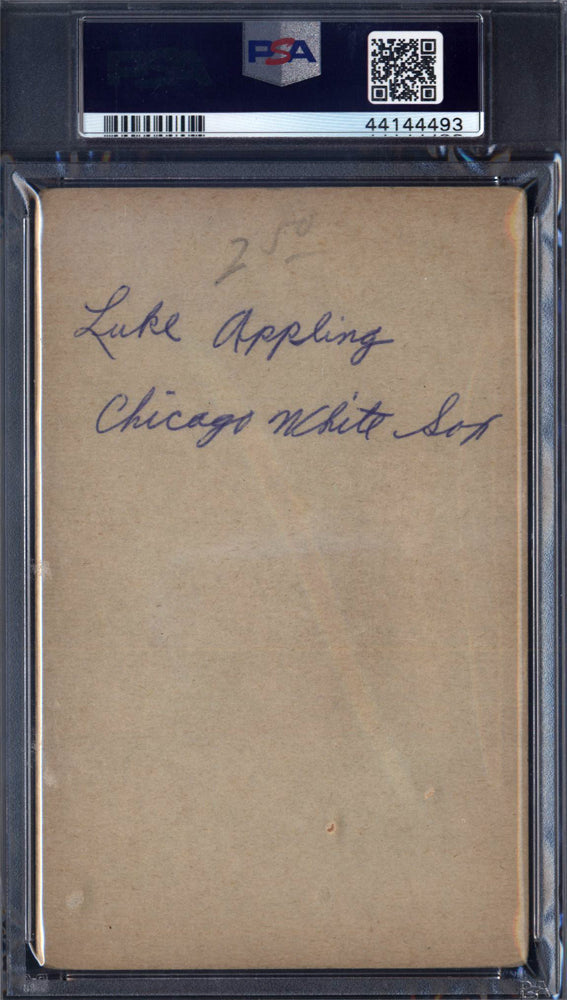 PSA
44144493
2 50
Luke Appling
Chicago White Sox